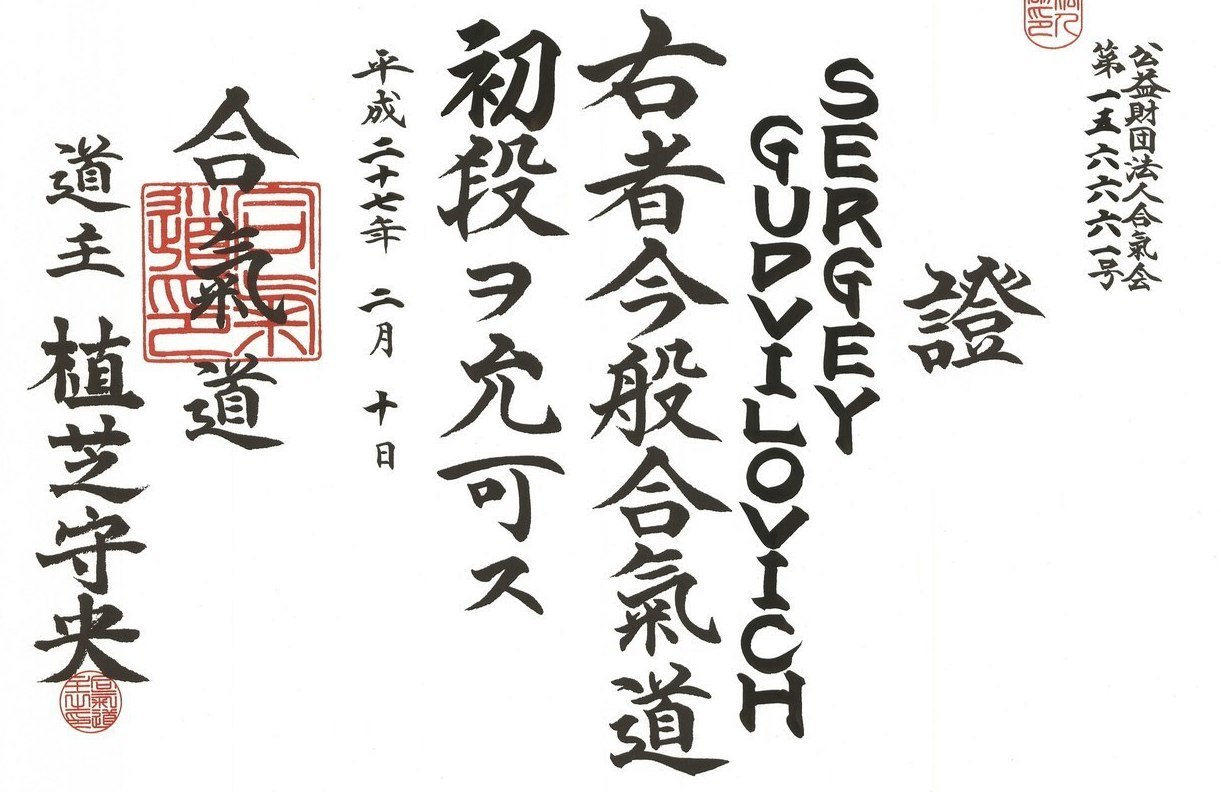 公益財団法人合氣会
第一五六六六一号
證
SERGEY
GUDVILOVICH
右者今般合氣道
初段ヲ允可ス
平成二十七年 二月 十日
合氣道
道主 植芝守央